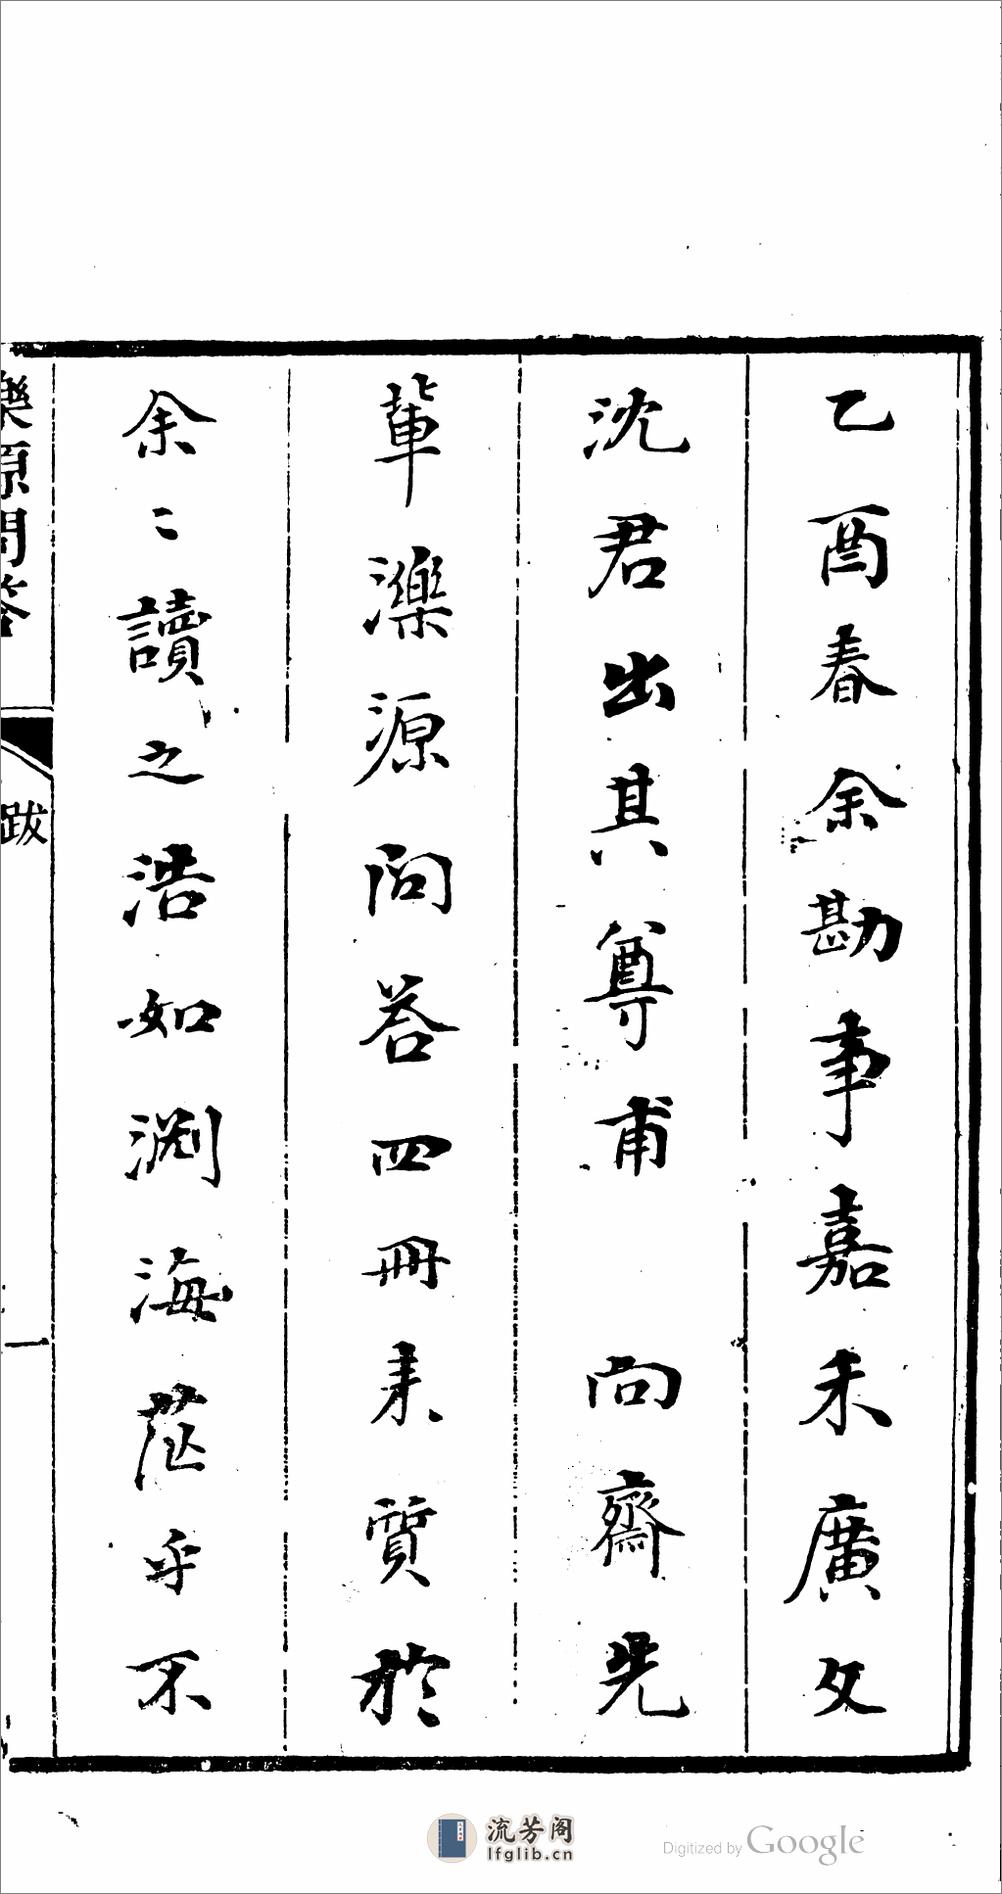 乙酉春余勘事嘉禾廣文
沈君出其尊甫 向齋先
輩濼源問答四冊來質於
余〻讀之浩如淵海茫乎不
濼源問答
跋
一
流芳阁
lfglib.cn
Digitized by Google